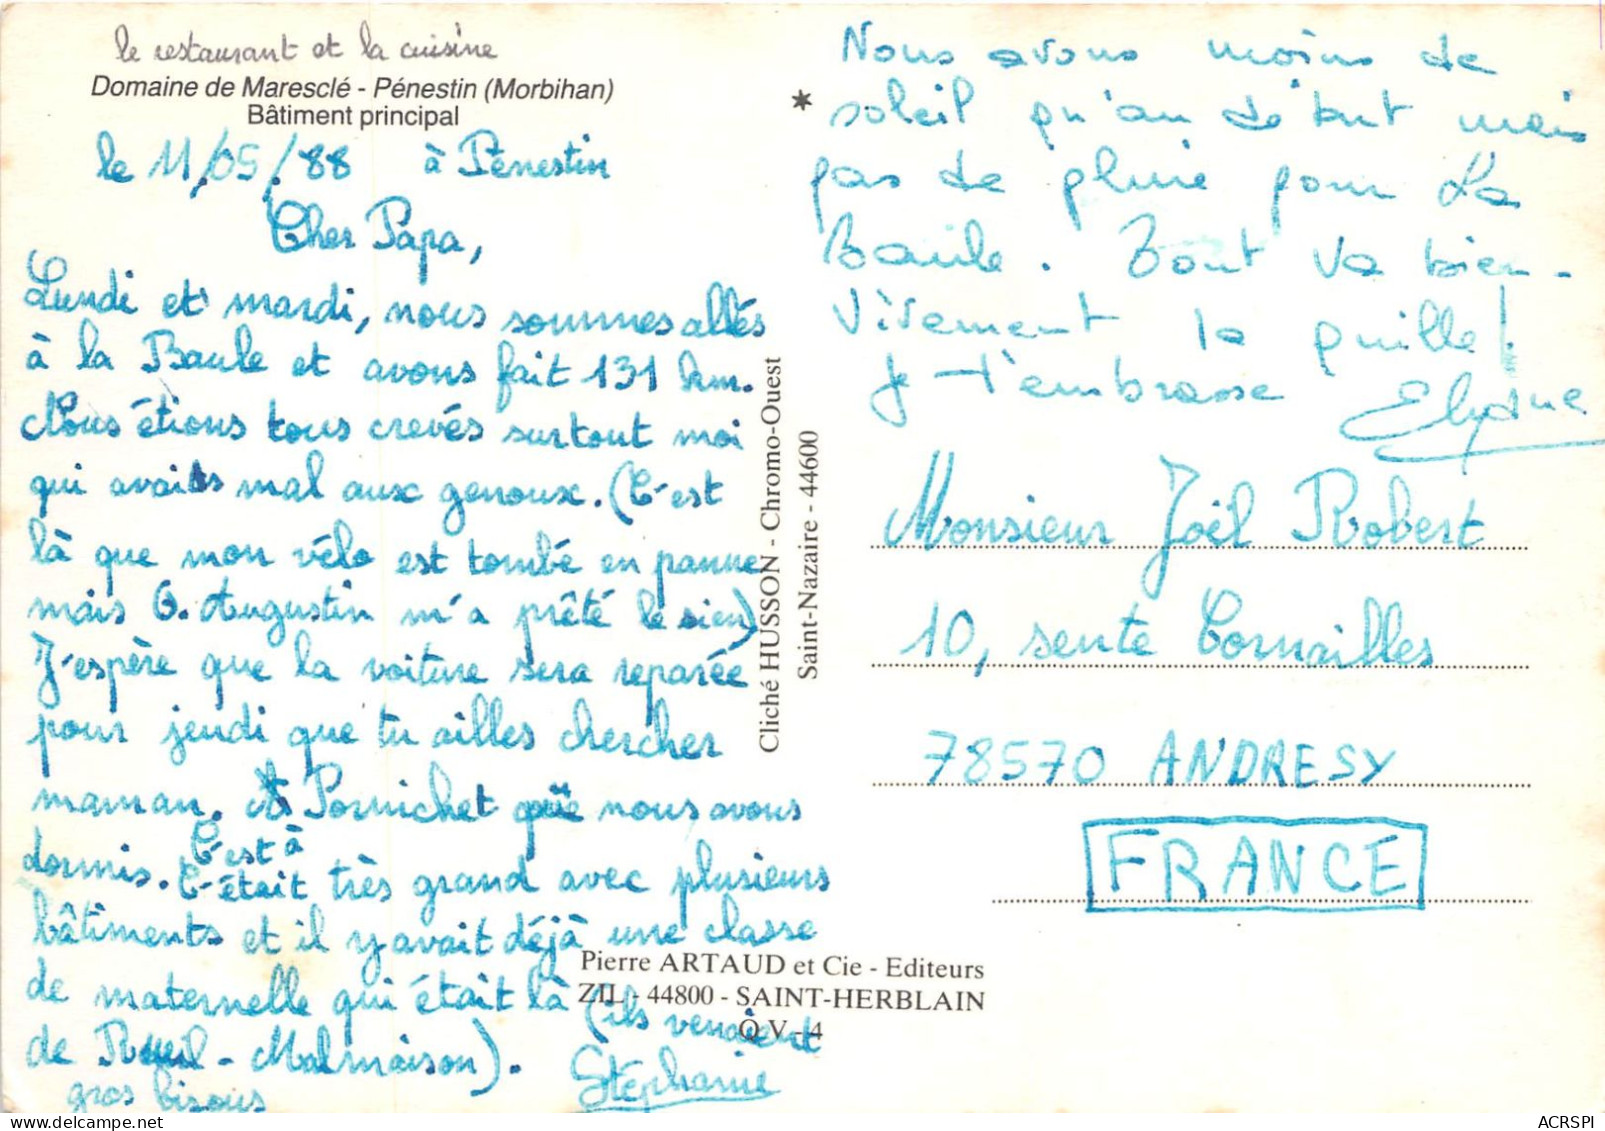 le restaurant et la cuisine
Domaine de Maresclé - Pénestin (Morbihan)
Bâtiment principal
le 11/05/88 à Pénestin
Cher Papa,
Lundi et mardi, nous sommes allés
à la Baule et avons fait 131 km.
Nous étions tous crevés surtout moi
qui avais mal aux genoux. (C'est
là que mon vélo est tombé en panne
mais O. Augustin m'a prêté le sien)
J'espère que la voiture sera reparée
pour jeudi que tu ailles chercher
maman. A Pornichet que nous avons
C'est à
dormis. C'était très grand avec plusieurs
bâtiments et il y avait déjà une classe
de maternelle qui était là (ils venaient
de Rueil-Malmaison).
gros bisous
Stéphanie
Cliché HUSSON - Chromo-Ouest
Saint-Nazaire - 44600
Pierre ARTAUD et Cie - Editeurs
ZIL - 44800 - SAINT-HERBLAIN
Q V - 4
*
Nous avons moins de
soleil qu'au début mais
pas de pluie pour La
Baule. Tout va bien -
Vivement la quille!
Je t'embrasse
Monsieur Joël Robert
10, sente Cornailles
78570 ANDRESY
FRANCE
ACRSPI